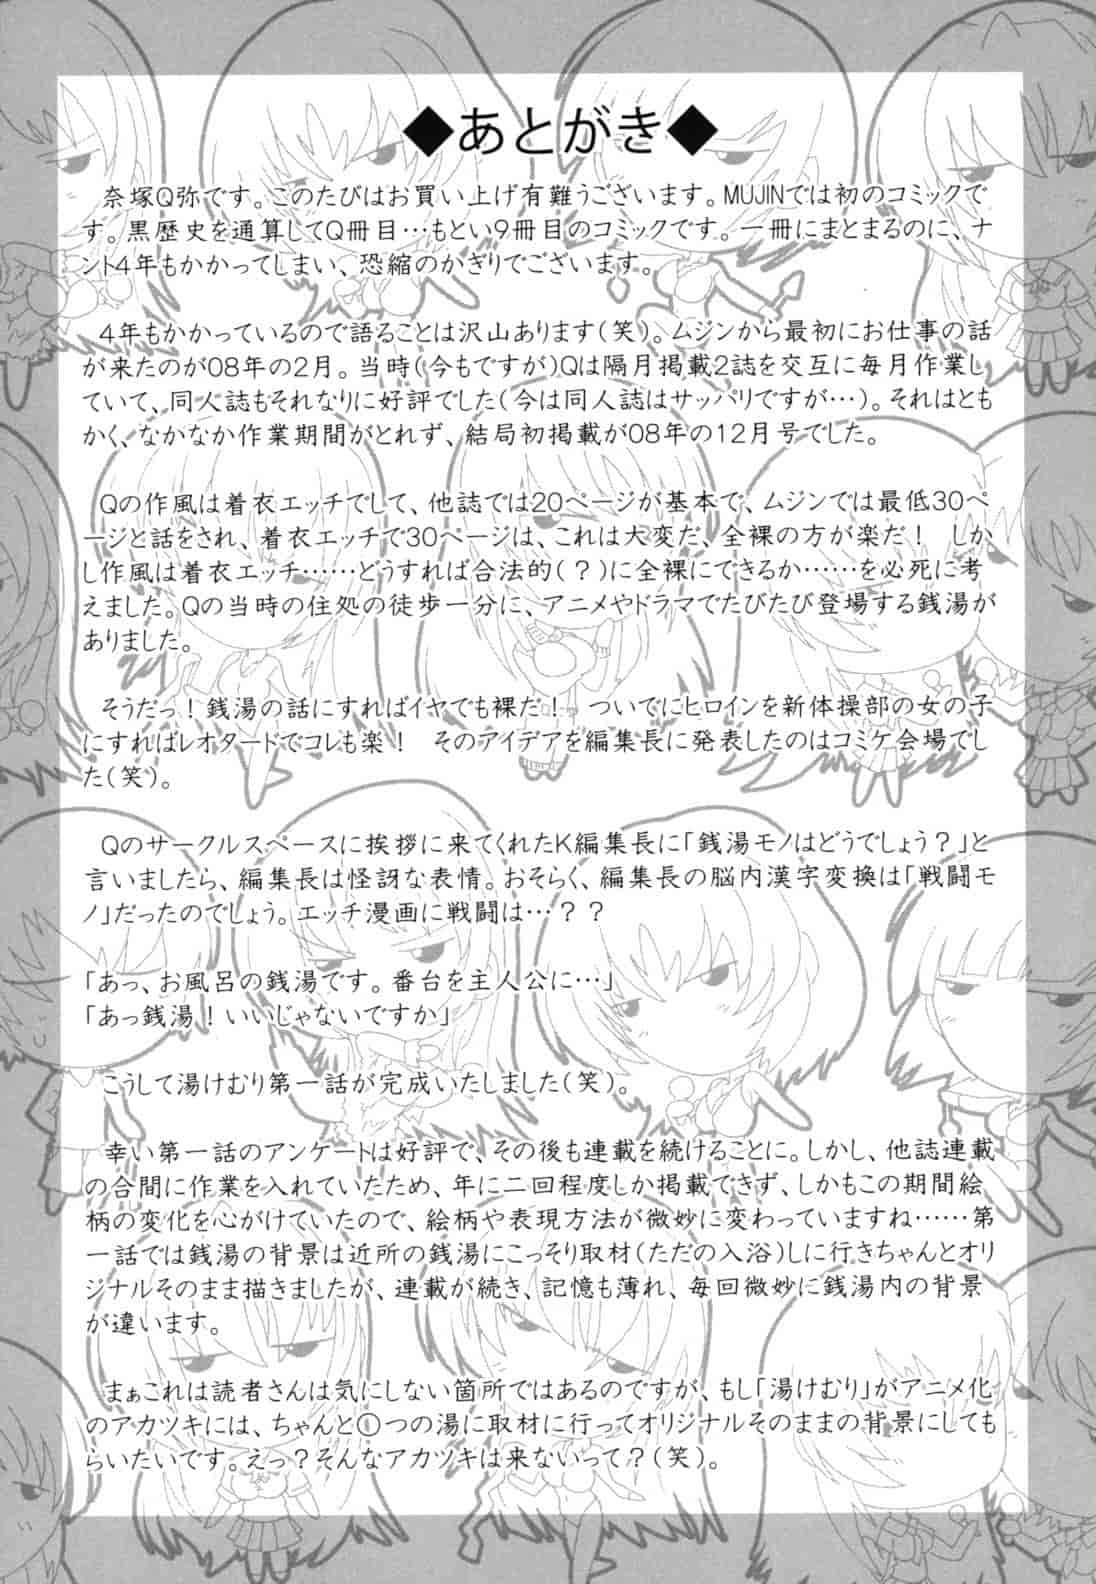 ◆あとがき◆
奈塚Q弥です。このたびはお買い上げ有難うございます。MUJINでは初のコミックで
す。黒歴史を通算してQ冊目…もとい9冊目のコミックです。一冊にまとまるのに、ナ
ント4年もかかってしまい、恐縮のかぎりでございます。
4年もかかっているので語ることは沢山あります(笑)。ムジンから最初にお仕事の話
が来たのが08年の2月。当時(今もですが)Qは隔月掲載2誌を交互に毎月作業し
ていて、同人誌もそれなりに好評でした(今は同人誌はサッパリですが…)。それはとも
かく、なかなか作業期間がとれず、結局初掲載が08年の12月号でした。
Qの作風は着衣エッチでして、他誌では20ページが基本で、ムジンでは最低30ペ
ージと話をされ、着衣エッチで30ページは、これは大変だ、全裸の方が楽だ！　しか
し作風は着衣エッチ……どうすれば合法的(？)に全裸にできるか……を必死に考
えました。Qの当時の住処の徒歩一分に、アニメやドラマでたびたび登場する銭湯が
ありました。
そうだっ！銭湯の話にすればイヤでも裸だ！　ついでにヒロインを新体操部の女の子
にすればレオタードでコレも楽！　そのアイデアを編集長に発表したのはコミケ会場でし
た(笑)。
Qのサークルスペースに挨拶に来てくれたK編集長に「銭湯モノはどうでしょう？」と
言いましたら、編集長は怪訝な表情。おそらく、編集長の脳内漢字変換は「戦闘モ
ノ」だったのでしょう。エッチ漫画に戦闘は…？？
「あっ、お風呂の銭湯です。番台を主人公に…」
「あっ銭湯！いいじゃないですか」
こうして湯けむり第一話が完成いたしました(笑)。
幸い第一話のアンケートは好評で、その後も連載を続けることに。しかし、他誌連載
の合間に作業を入れていたため、年に二回程度しか掲載できず、しかもこの期間絵
柄の変化を心がけていたので、絵柄や表現方法が微妙に変わっていますね……第
一話では銭湯の背景は近所の銭湯にこっそり取材(ただの入浴)しに行きちゃんとオリ
ジナルそのまま描きましたが、連載が続き、記憶も薄れ、毎回微妙に銭湯内の背景
が違います。
まぁこれは読者さんは気にしない箇所ではあるのですが、もし「湯けむり」がアニメ化
のアカツキには、ちゃんと①つの湯に取材に行ってオリジナルそのままの背景にしても
らいたいです。えっ？そんなアカツキは来ないって？(笑)。